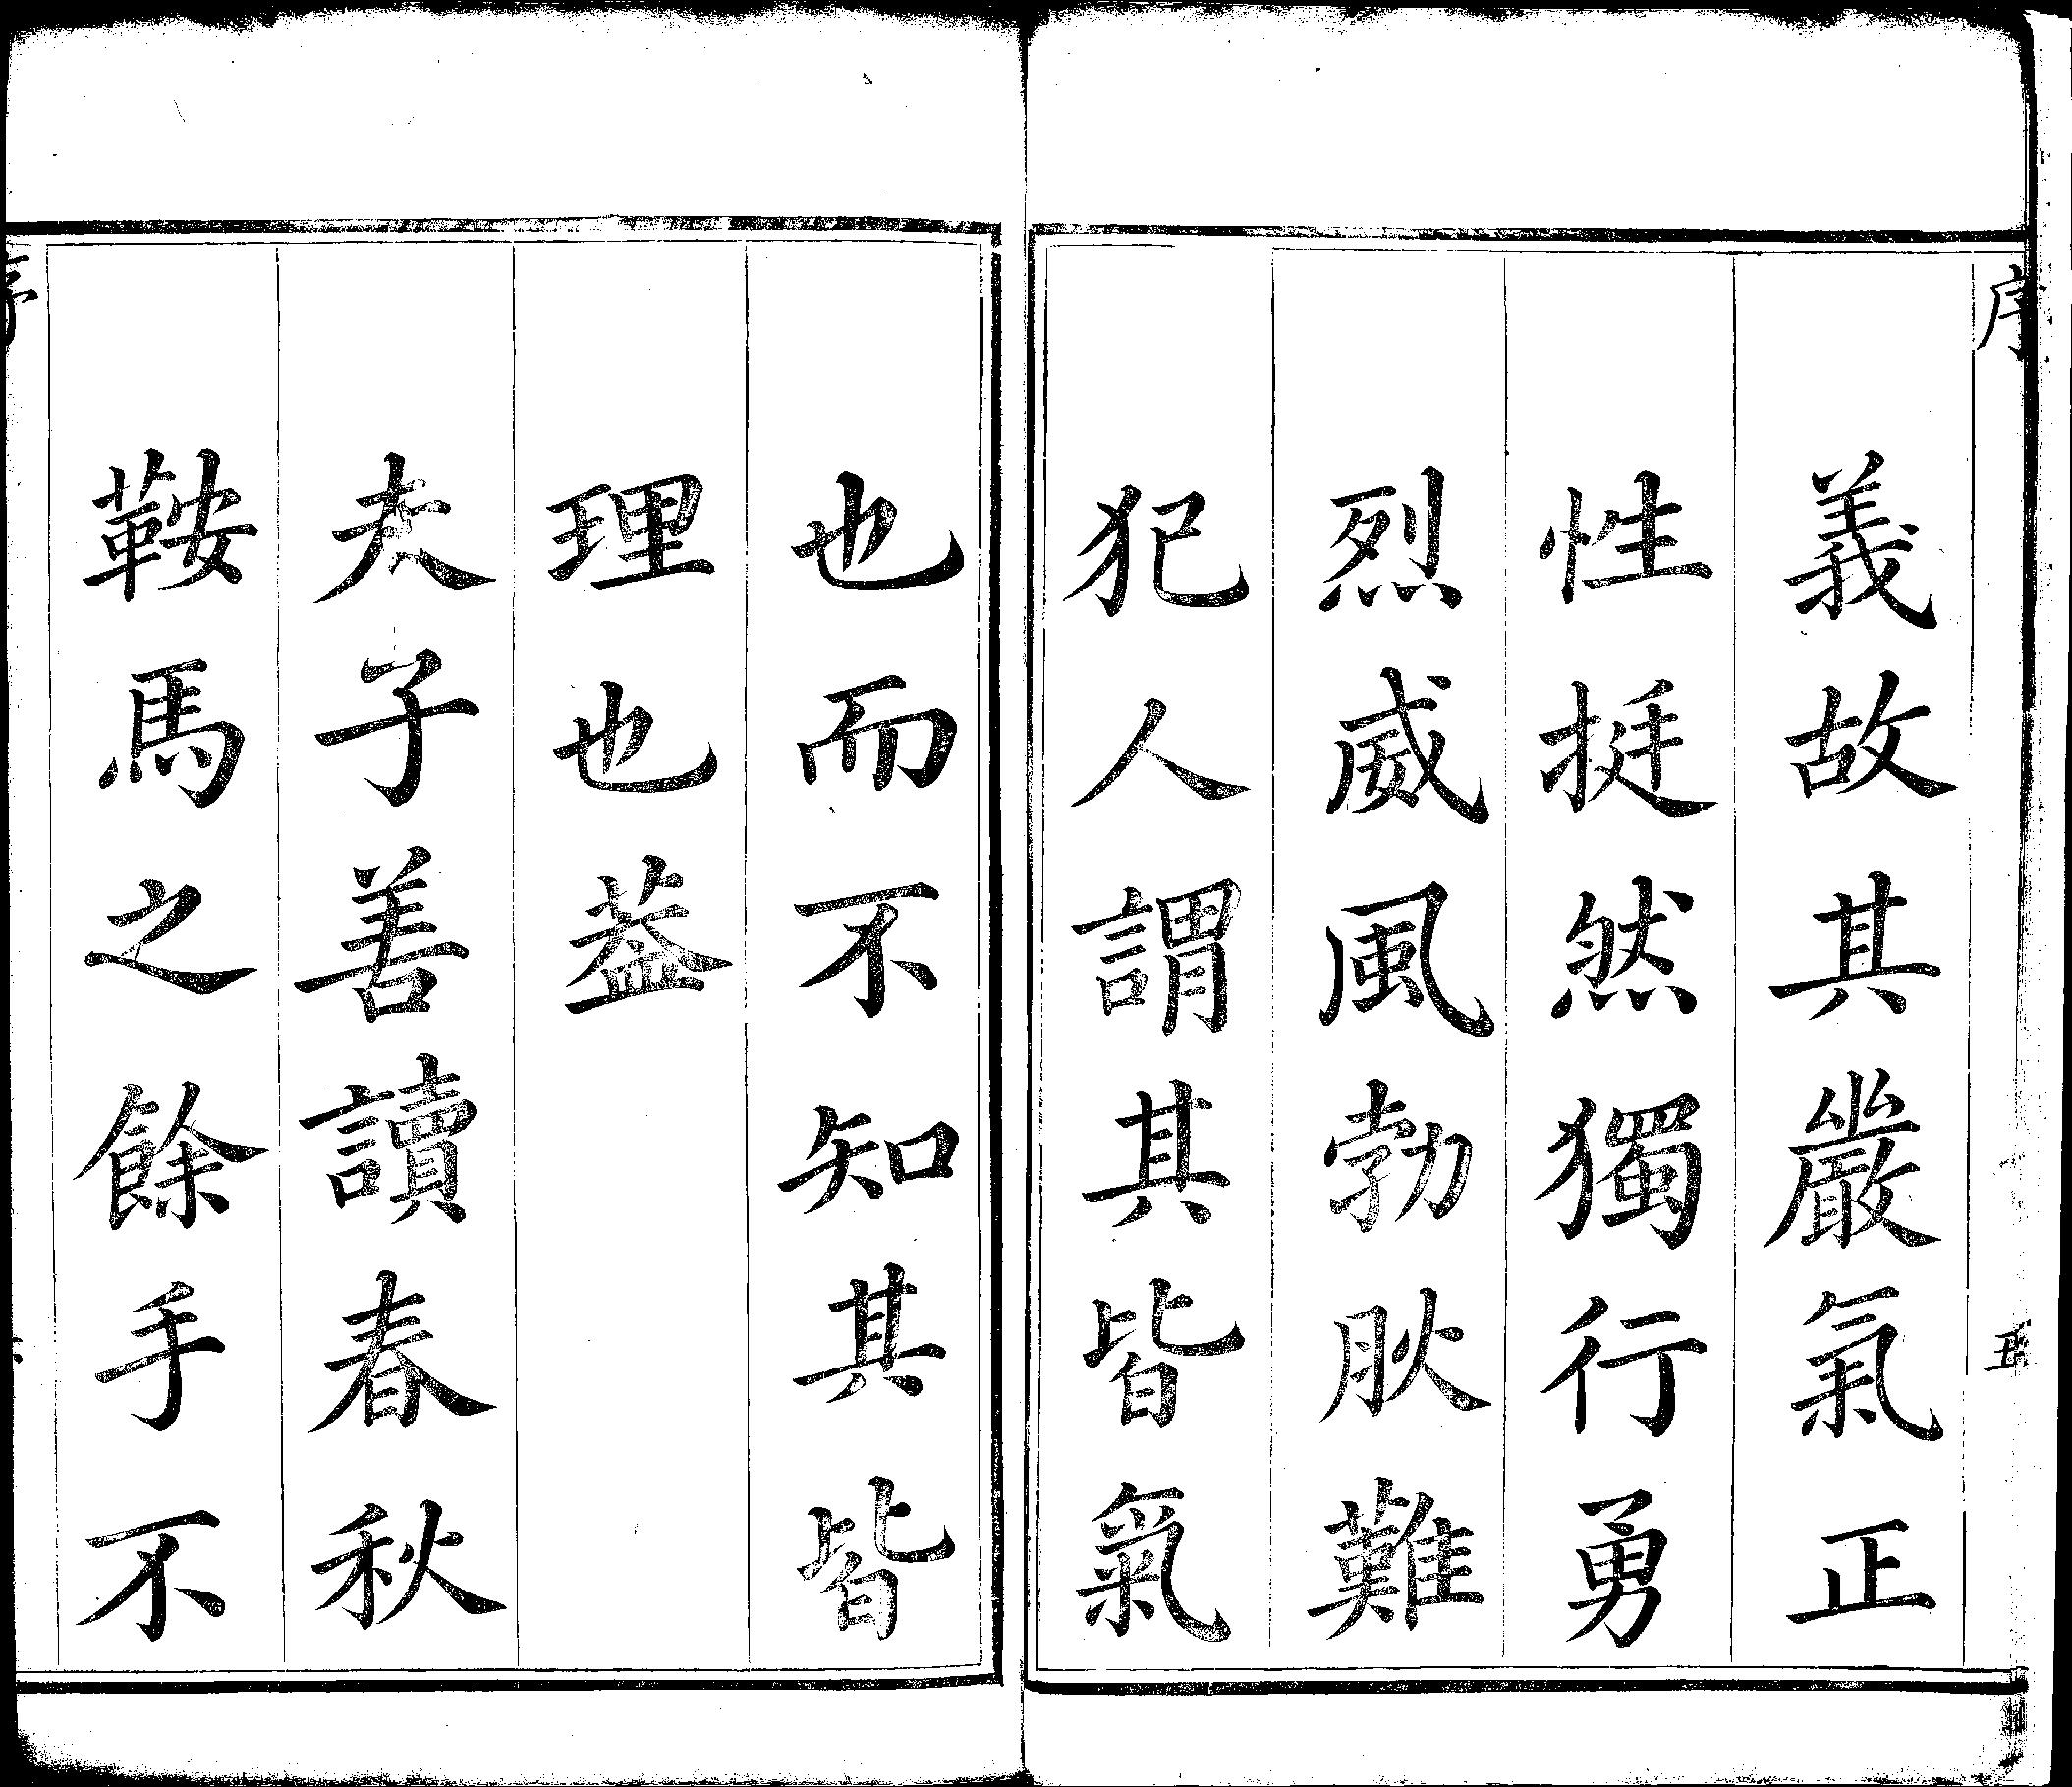 序
五
義故其嚴氣正
性挺然獨行勇
烈威風勃肰難
犯人謂其皆氣
也而不知其皆
理也葢
夫子善讀春秋
鞍馬之餘手不
序